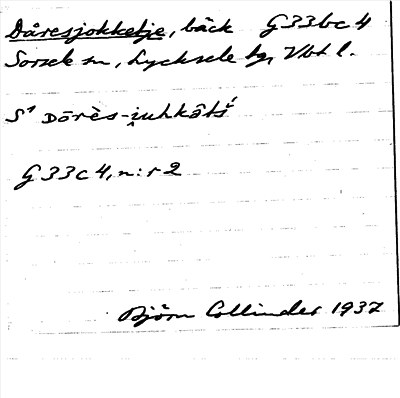 Dåresjokketje, bäck G33bc4
Sorsele sn, Lycksele lg, Vbtl.
S¹ Dōrès-i̯uhkāts̆́
G33c4, n:r 2
Björn Collinder 1937